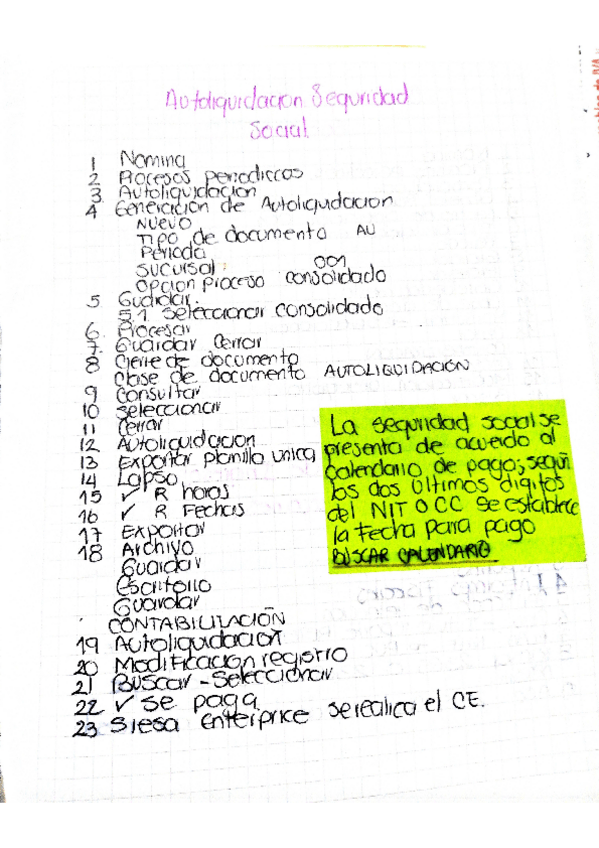 Autoliquidacion Seguridad
Social
1 Nomina
2 Procesos periodiccos
3. Autoliquidacion
4 Generacion de Autoliquidacion
Nuevo
Tipo de documento AU
Periodo
Sucursal: 001
Opcion proceso consolidado
5 Guardar.
5.1 Seleccionar consolidado
6. Procesar
7. Guardar Cerrar
8 Cierre de documento
Clase de documento AUTOLIQUIDACIÓN
9 Consultar
10 Seleccionar
11 Cerrar
12 Autoliquidacion
13 Exportar planilla unica
14 Lapso
15 ✓ R horas
16 ✓ R Fechas
17 Exportar
18 Archivo
Guardar
Escritorio
Guardar
CONTABILIZACIÓN
19 Autoliquidación
20 Modificacion registro
21 Buscar - Seleccionar
22 ✓ Se paga
23 Siesa Enterprice se realica el CE.
La seguridad social se
presenta de acuerdo al
calendario de pago; según
los dos últimos dígitos
del NIT O CC se establece
la fecha para pago
BUSCAR CALENDARIO